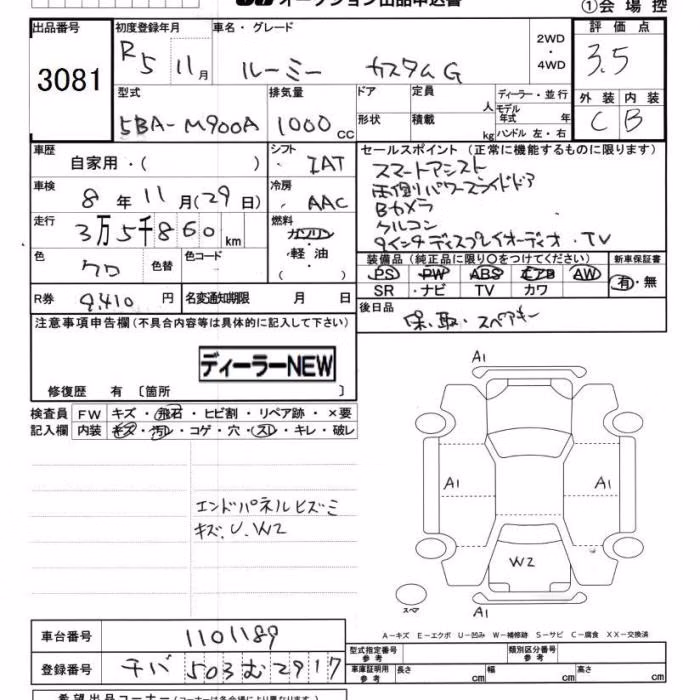 オークション出品申込書
①会場控
出品番号 初度登録年月 車名・グレード 評価点
3081 R5 11月 ルーミー カスタムG 2WD・4WD 3.5
型式 排気量 ドア 定員 人 ディーラー・並行 外装 内装
5BA-M900A 1000cc 形状 積載 kg モデル年式 年 ハンドル 左・右 C B
車歴 自家用・( ) シフト ・IAT セールスポイント(正常に機能するものに限ります)
車検 8年11月(29日) 冷房 ・AAC スマートアシスト
両側パワースライドドア
Bカメラ
走行 3万5千860km 燃料 ガソリン・軽油・( ) クルコン
9インチディスプレイオーディオ・TV
色 クロ 色替 色コード 装備品(純正品に限り〇をつけてください) 新車保証書
PS PW ABS エアB AW 有・無
SR ・ナビ TV カワ
R券 9,410円 名変通知期限 月 日 後日品 保・取・スペアキー
注意事項申告欄(不具合内容等は具体的に記入して下さい)
ディーラーNEW
修復歴 有〔箇所 〕
検査員 FW キズ・飛石・ヒビ割・リペア跡・×要
記入欄 内装 キズ・汚レ・コゲ・穴・スレ・キレ・破レ
A1
A1 A1
エンドパネルヒズミ
キズ.U.W2
W2
スペア
A1
A―キズ E―エクボ U―凹み W―補修跡 S―サビ C―腐食 XX―交換済
車台番号 1101189 型式指定番号 参考 類別区分番号 参考
登録番号 チバ 503 む 2917 車庫証明用 参考 長さ cm 幅 cm 高さ cm
希望出品コーナー(コーナーは各会場により異なります)